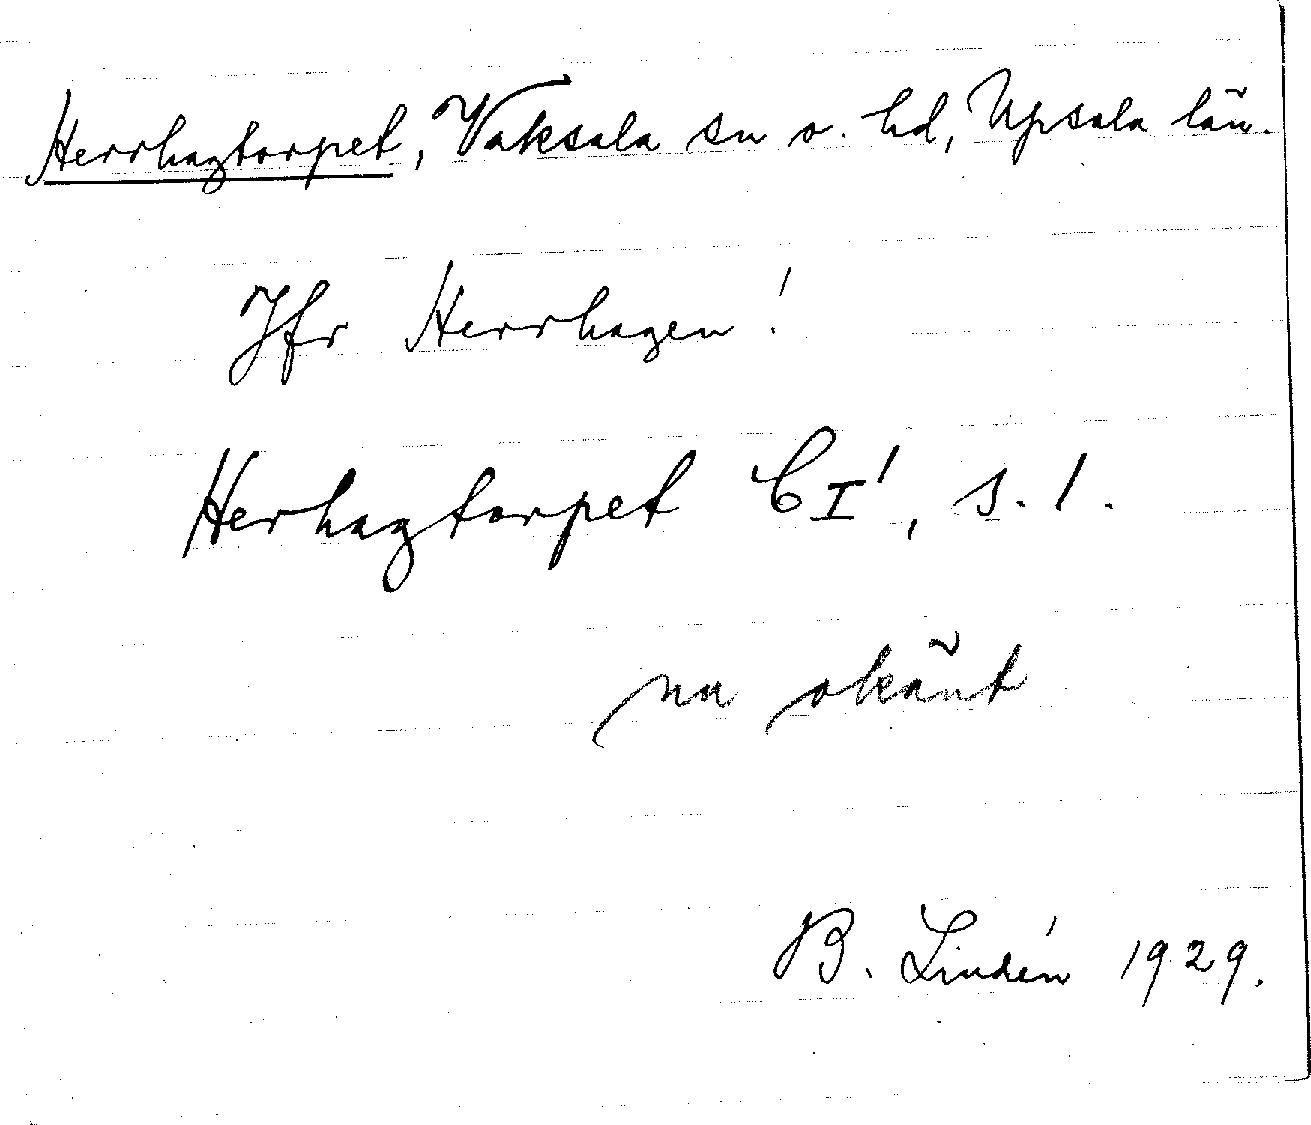 Herrhagtorpet, Vaksala sn o. hd, Upsala län.
Jfr Herrhagen!
Herhagtorpet CI¹, s. 1.
nu okänt
B. Lindén 1929.